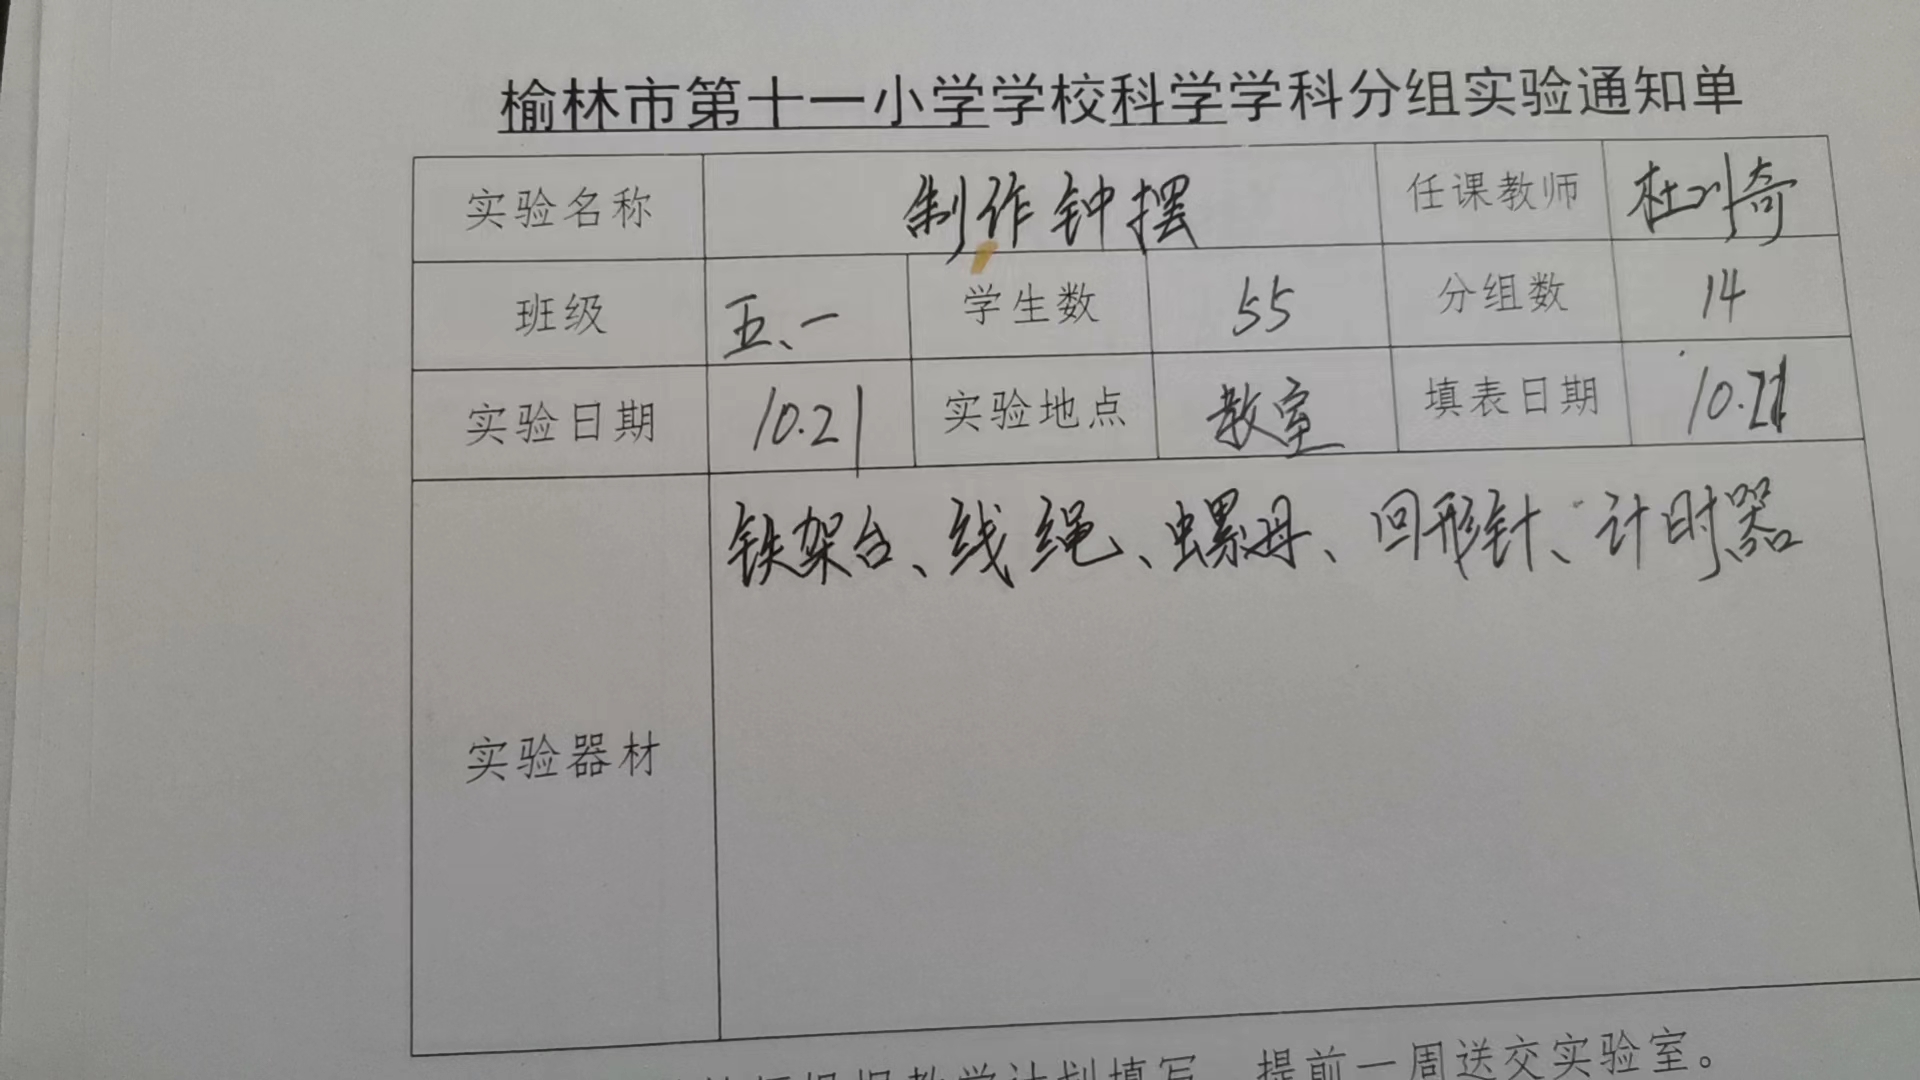 榆林市第十一小学学校科学学科分组实验通知单
实验名称 制作钟摆 任课教师 杜小奇
班级 五、一 学生数 55 分组数 14
实验日期 10.21 实验地点 教室 填表日期 10.21
铁架台、线绳、螺母、回形针、计时器
实验器材
教学计划填写 提前一周送交实验室。